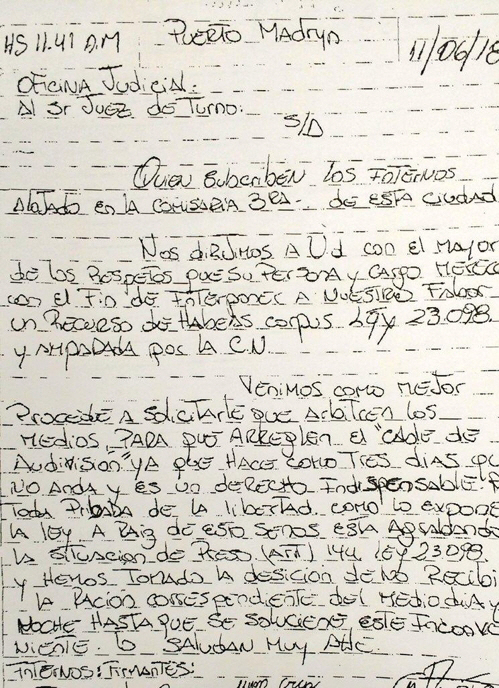 HS 11.41 A.M
PUERTO MADRYN
11/06/18
OFICINA JUDICIAL.
Al SR JUEZ de TURNO:
S/D
QUIEN SUBSCRIBEN LOS INTERNOS
ALOJADO EN LA COMISARIA 3RA-. de ESTA CIUDAD
NOS DIRIJIMOS A Ud CON el MAYOR
de los RESPETOS QUE SU PERSONA y CARGO MERECE
CON el FIN de INTERPONER A NUESTRO FABOR
UN RECURSO de HABEAS CORPUS LEY 23.098
y AMPARADA POR LA C.N
VENIMOS COMO MEJOR
PROCEDE A SOLICITARLE QUE ARBITREN LOS
MEDIOS, PARA QUE ARREGLEN El "CABLE DE
AUDIVISION" YA QUE HACE COMO TRES DIAS QU
NO ANDA y ES UN DERECHO INDISPENSABLE P
TODA PRIBADA DE LA LIBERTAD. COMO lo EXPONE
LA ley, A RAIZ DE ESTO SENOS ESTA AGRABANDO
LA SITUACION DE PRESO (ART) 144. LEY 23098
y HEMOS TOMADO LA DESICION DE NO RECIBI
LA RACION CORRESPONDIENTE DEL MEDIO DIA y
NOCHE HASTA QUE SE SOLUCIENE ESTE INCONVE
NIENTE. lo SALUDAN MUY ATTE
INTERNOS: FIRMANTES: